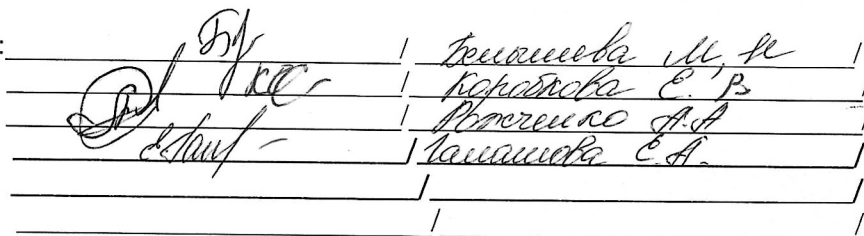 : / Белышева М. Н /
/ Коробкова Е. В /
/ Рожченко А.А /
/ Галашова Е.А. /
/ /
/ /